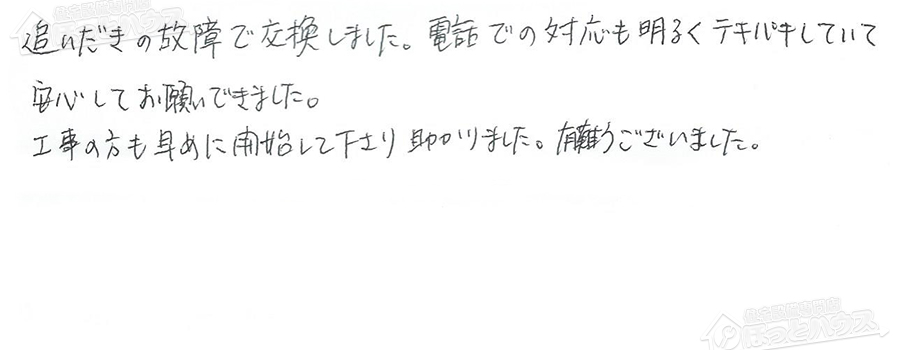 追いだきの故障で交換しました。電話での対応も明るくテキパキしていて
安心してお願いできました。
工事の方も早めに開始して下さり助かりました。有難うございました。
ほっとハウス